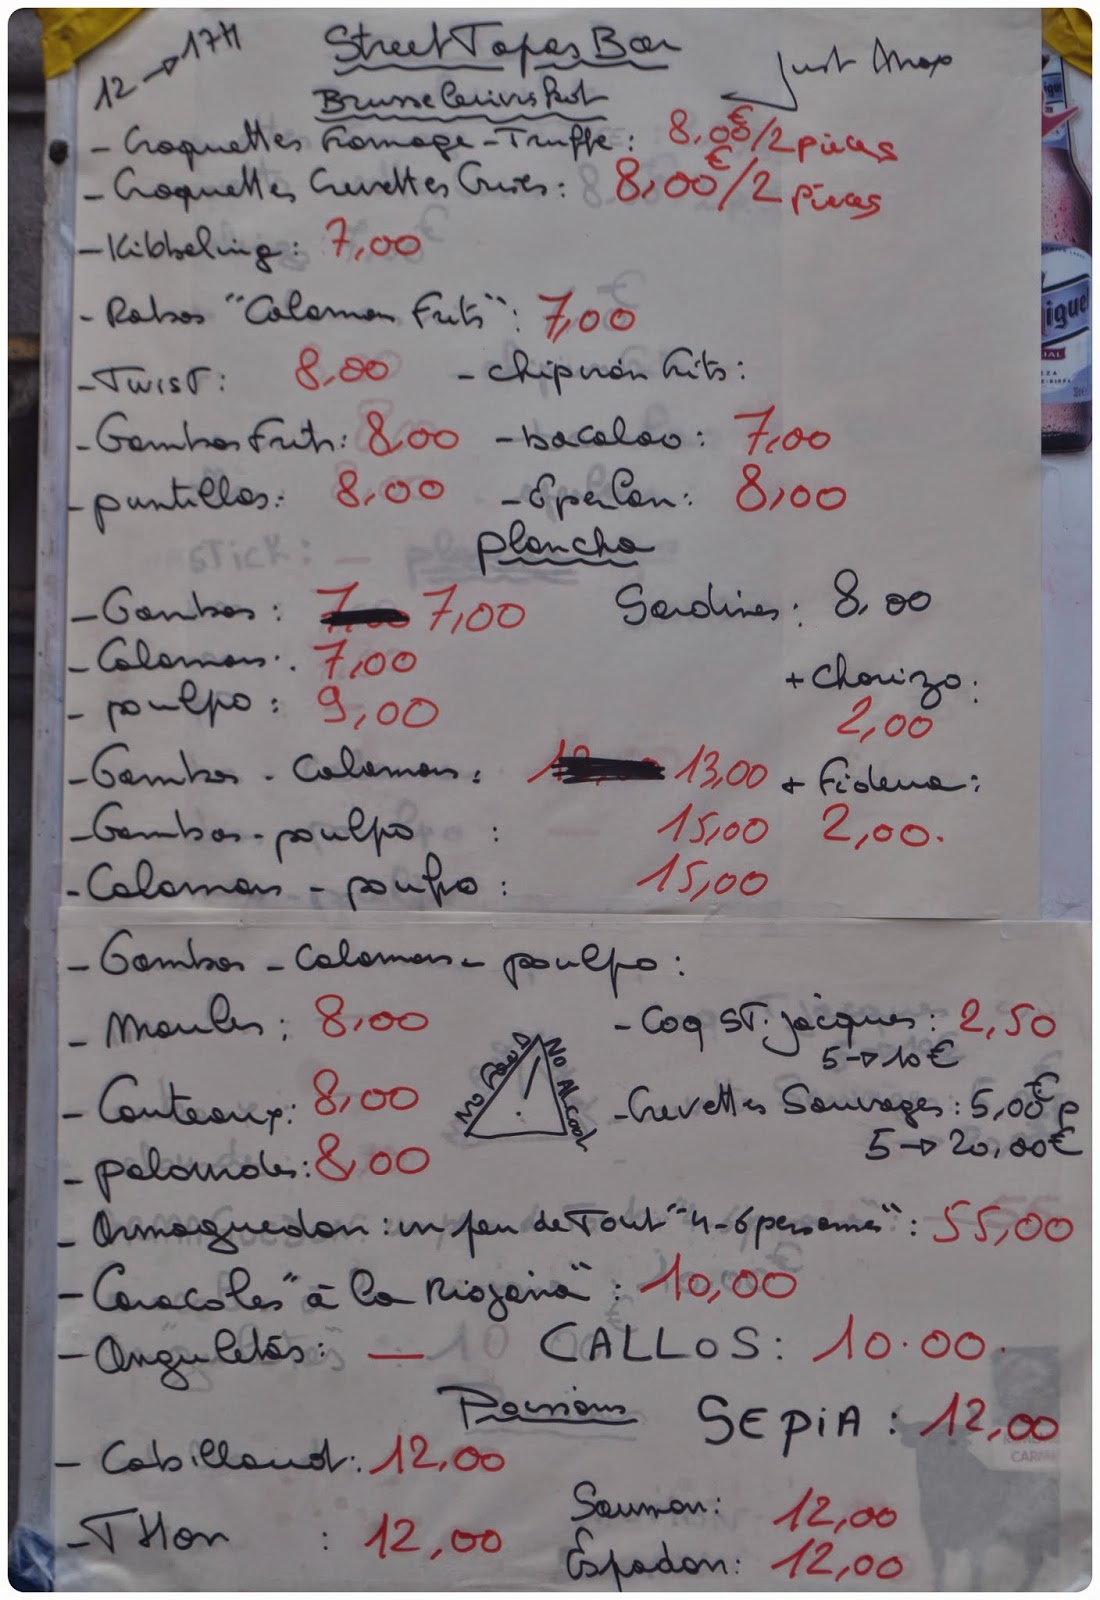 12 → 17H
Street Tapas Bar
Just
- Croquettes Fromage - Truffe : 8,00€/2 pièces
- Croquettes Crevettes Grises : 8,00€/2 pièces
- Kibbeling : 7,00
- Rabas "Calamars Frits" : 7,00
- Twist : 8,00 - Chipirón Frits :
- Gambas Frits : 8,00 - bacalao : 7,00
- puntillas : 8,00 - Eperlan : 8,00
plancha
- Gambas : 7,00 Sardines : 8,00
- Calamars : 7,00
+ Chorizo :
- poulpo : 9,00 2,00
- Gambas - Calamars : 13,00 + Fideua :
- Gambas - poulpo : 15,00 2,00.
- Calamars - poulpo : 15,00
- Gambas - Calamars - poulpo :
- Moules : 8,00 - Coq ST. Jacques : 2,50
5 → 10€
No No Alcool
- Couteaux : 8,00 - Crevettes Sauvages : 5,00€ p
5 → 20,00€
- palourdes : 8,00
- Armaguedon : un peu de Tout "4-6 personnes" : 55,00
- Caracoles "à la Riojana" : 10,00
- Anguletas : — CALLOS : 10.00.
Poissons SEPIA : 12,00
- Cabillaud : 12,00
Saumon : 12,00
- THon : 12,00
Espadon : 12,00
iguel